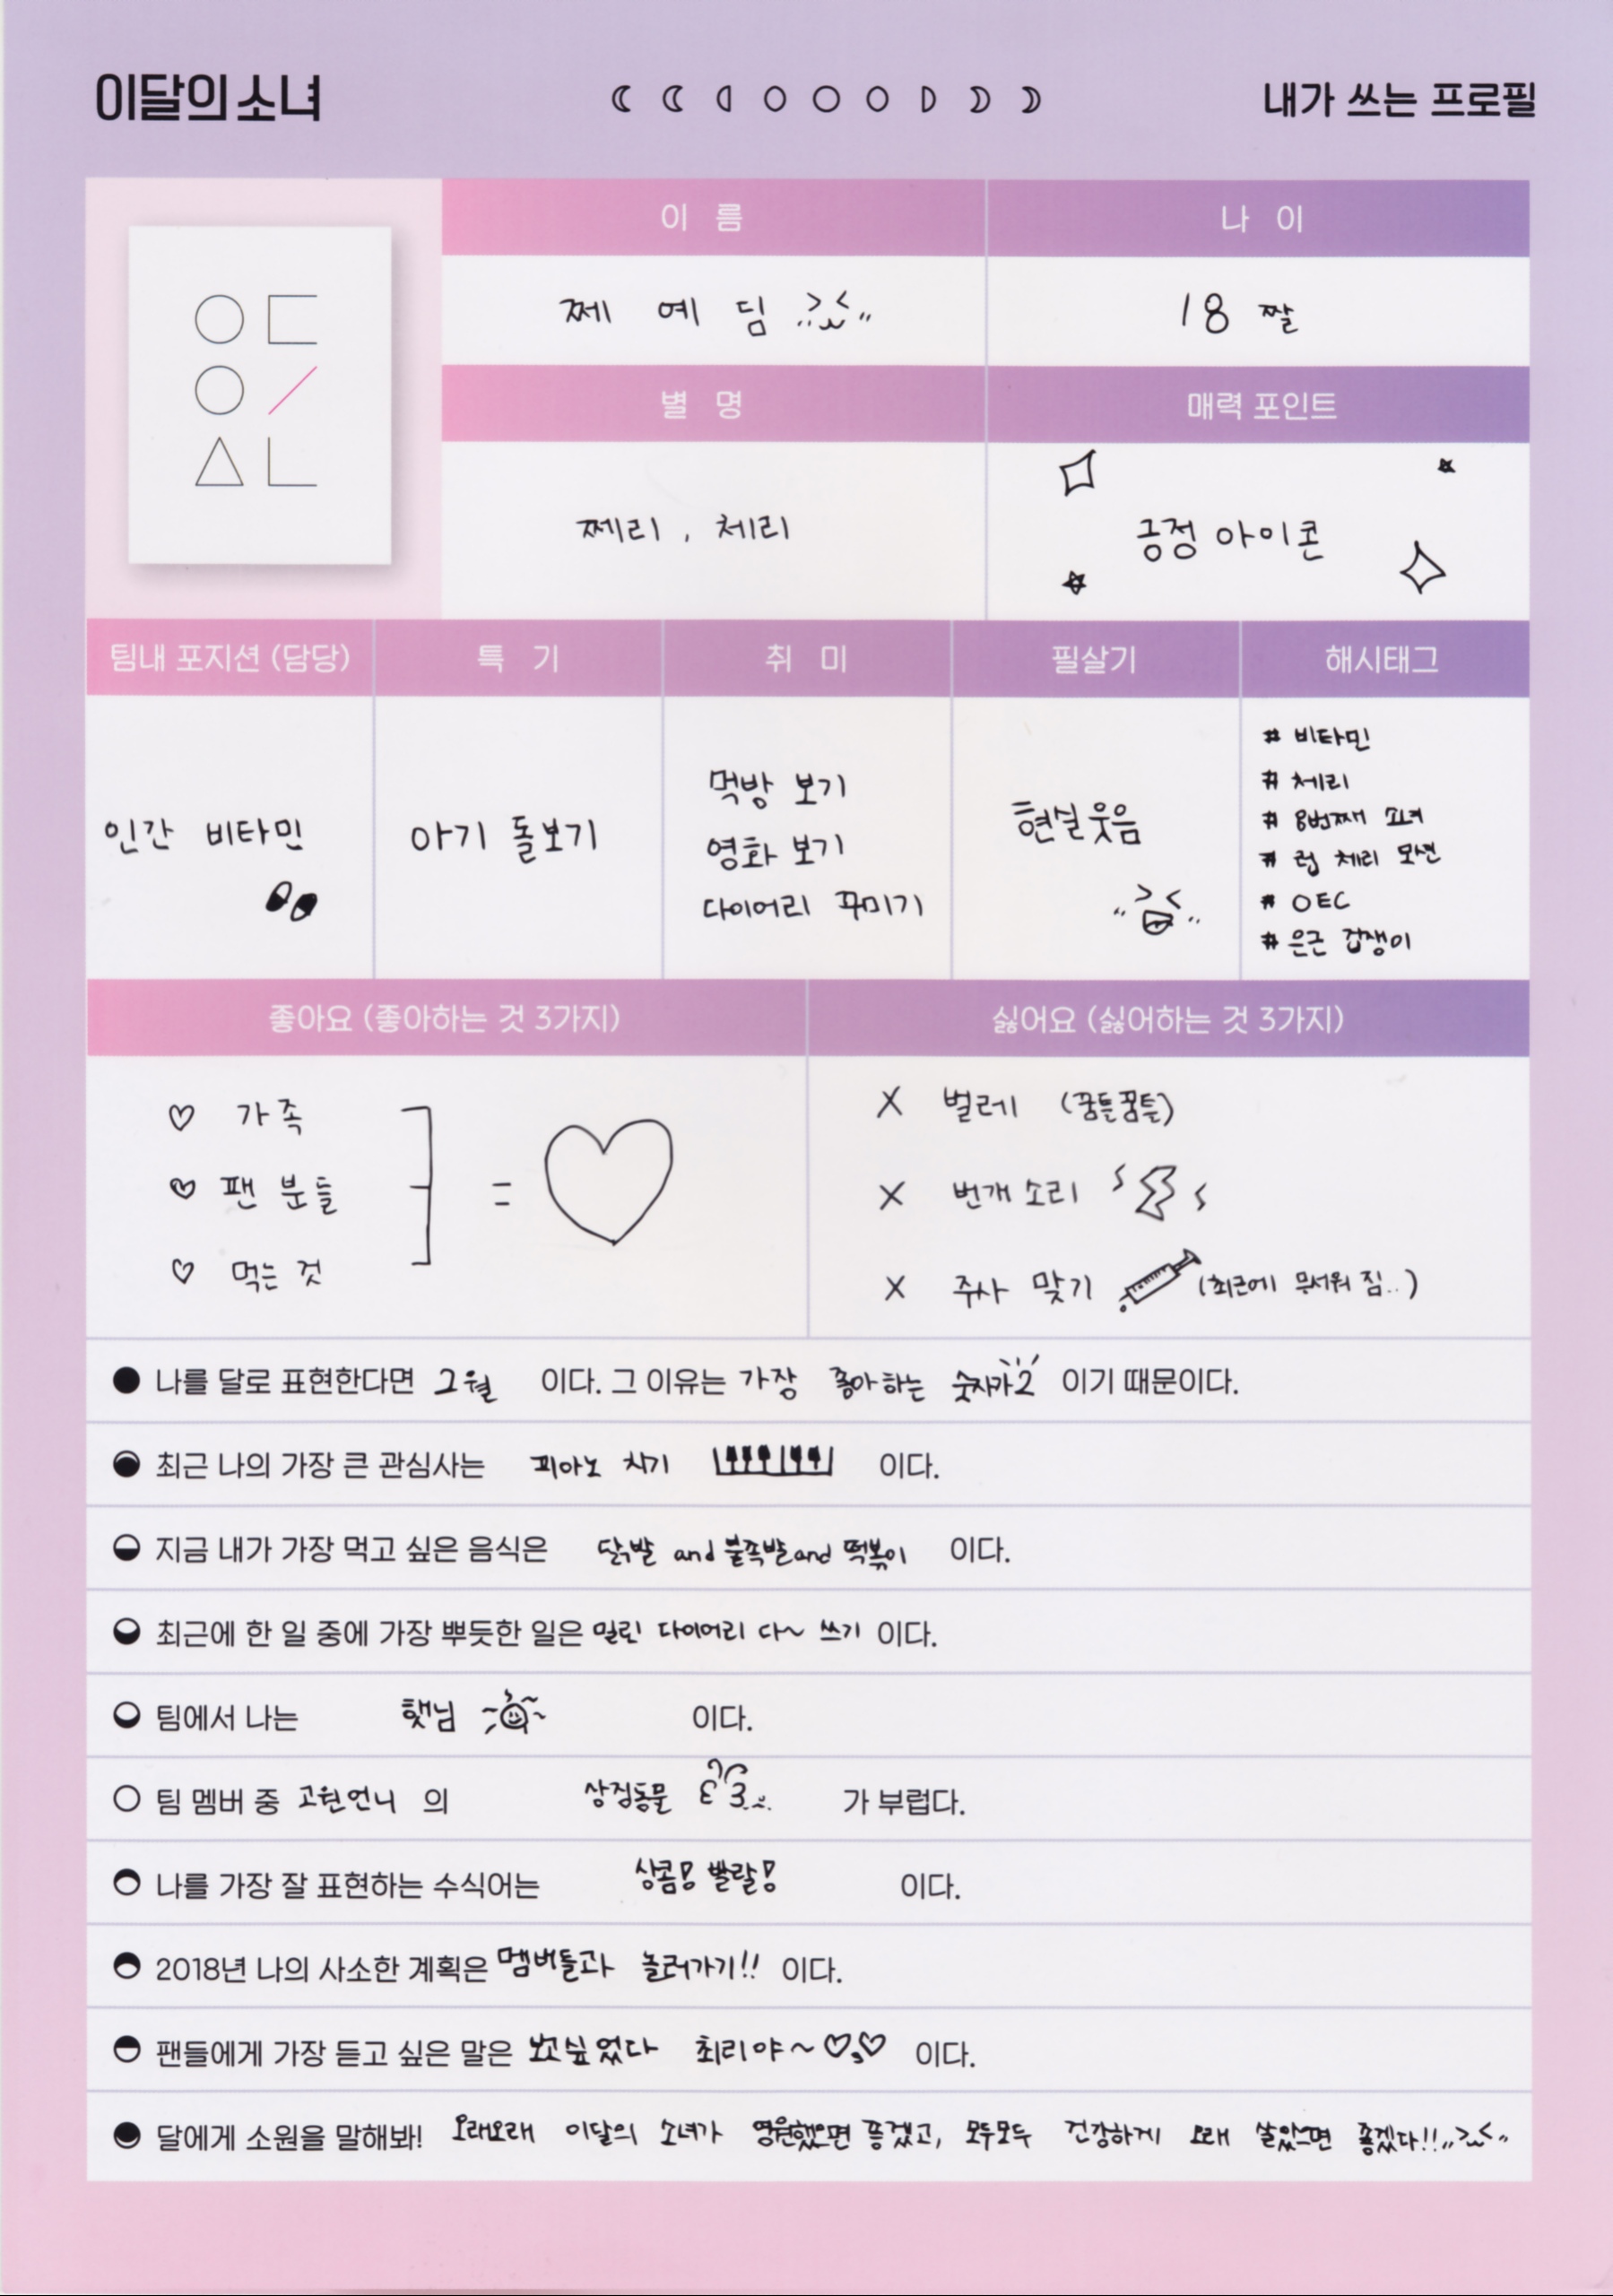 이달의 소녀
내가 쓰는 프로필
이 름
나 이
쩨 예 딤
18 짤
별 명
매력 포인트
쩨리, 체리
긍정 아이콘
팀내 포지션 (담당)
특 기
취 미
필살기
해시태그
인간 비타민
아기 돌보기
먹방 보기
영화 보기
다이어리 꾸미기
현실웃음
# 비타민
# 체리
# 8번째 소녀
# 럽 체리 모션
# OEC
# 은근 겁쟁이
좋아요 (좋아하는 것 3가지)
싫어요 (싫어하는 것 3가지)
♡ 가족
♡ 팬 분들
♡ 먹는 것
= ♡
X 벌레 (꿈틀꿈틀)
X 번개 소리
X 주사 맞기 (최근에 무서워 짐..)
나를 달로 표현한다면 2월 이다. 그 이유는 가장 좋아하는 숫자가2 이기 때문이다.
최근 나의 가장 큰 관심사는 피아노 치기 이다.
지금 내가 가장 먹고 싶은 음식은 닭발 and 불족발 and 떡볶이 이다.
최근에 한 일 중에 가장 뿌듯한 일은 밀린 다이어리 다~ 쓰기 이다.
팀에서 나는 햇님 이다.
팀 멤버 중 고원언니 의 상징동물 가 부럽다.
나를 가장 잘 표현하는 수식어는 상콤! 발랄! 이다.
2018년 나의 사소한 계획은 멤버들과 놀러가기!! 이다.
팬들에게 가장 듣고 싶은 말은 보고싶었다 최리야~♡♡ 이다.
달에게 소원을 말해봐! 오래오래 이달의 소녀가 영원했으면 좋겠고, 모두모두 건강하게 오래 살았으면 좋겠다!!